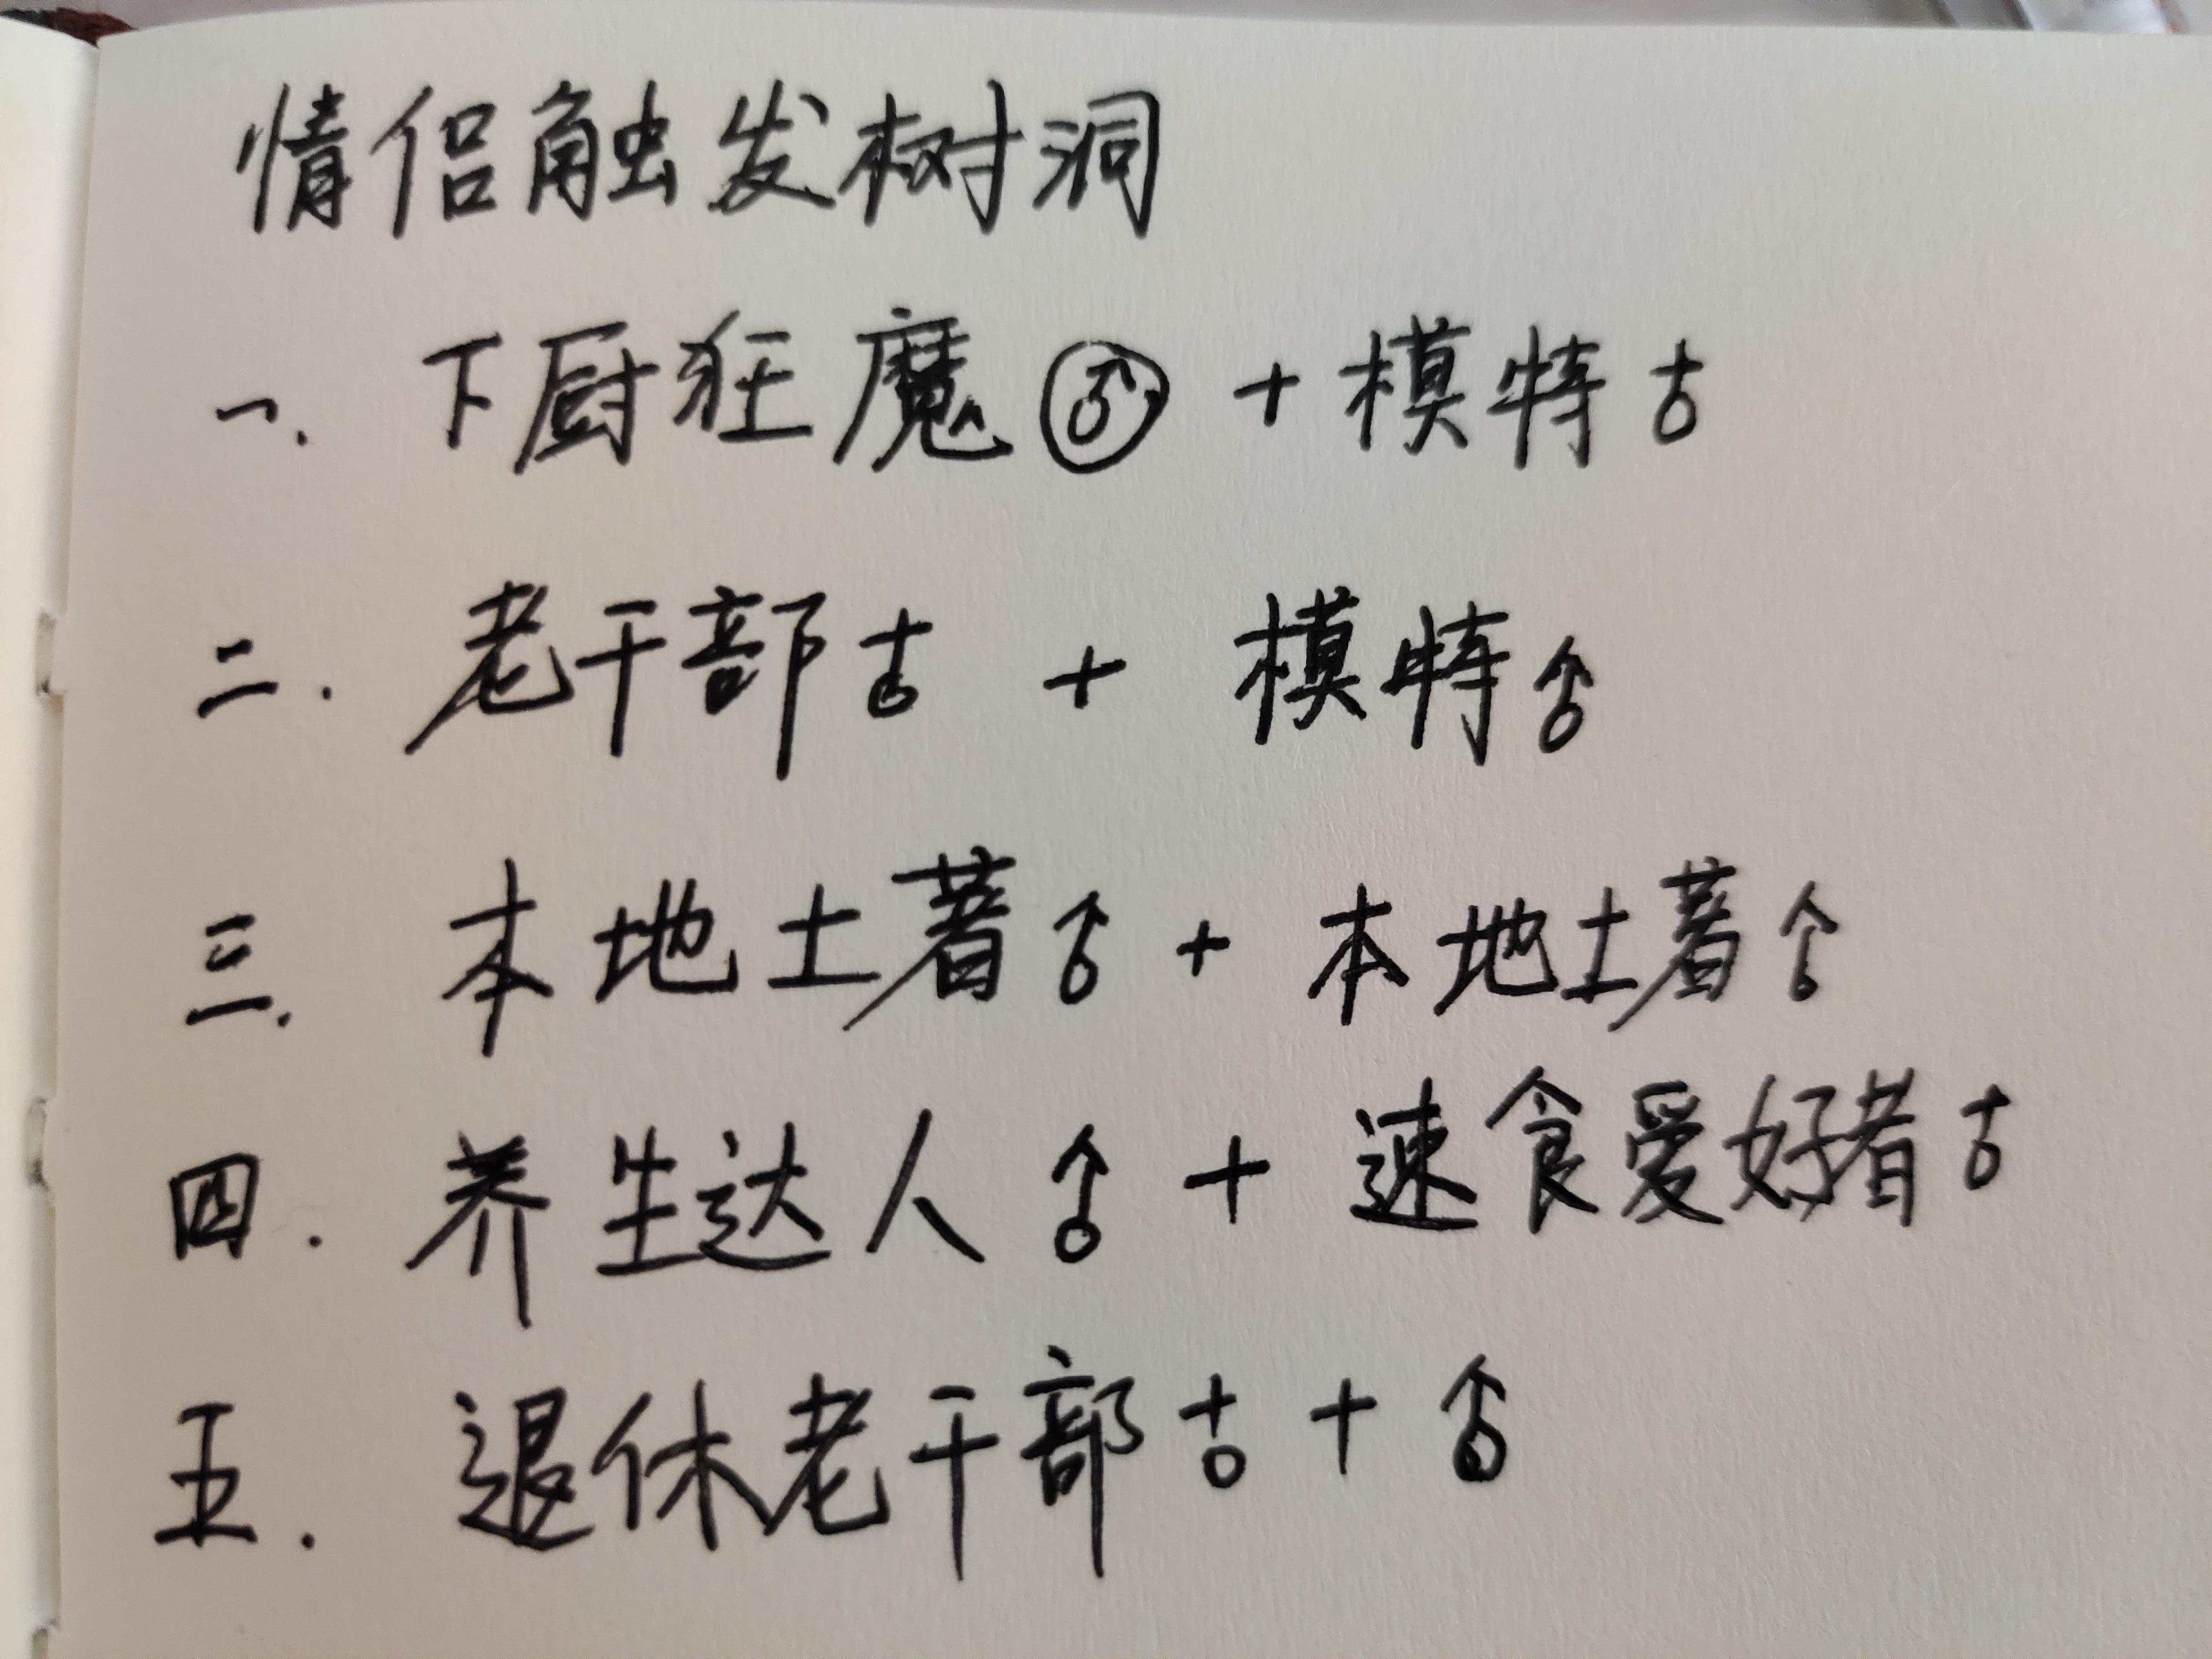 情侣触发树洞
一. 下厨狂魔♂ + 模特♀
二. 老干部♀ + 模特♂
三. 本地土著♂ + 本地土著♂
四. 养生达人♂ + 速食爱好者♀
五. 退休老干部♀ + ♂